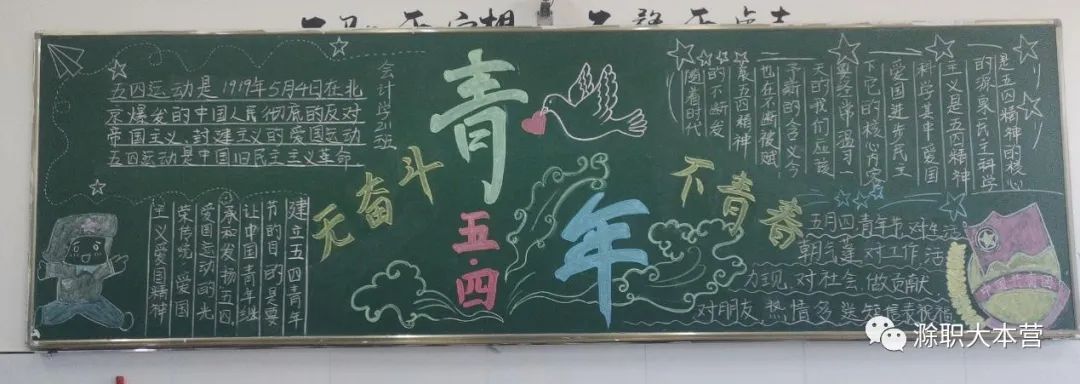 五四运动是1919年5月4日在北
京爆发的中国人民彻底的反对
帝国主义、封建主义的爱国运动
五四运动是中国旧民主主义革命
会计学21班
建立五四青年
节的目的是要
让中国青年继
承和发扬五四
爱国运动的光
荣传统 爱国
主义爱国精神
青年
五·四
无奋斗
不青春
是五四精神的核心
的源泉民主科学
主义是五四精神
科学其中爱国
爱国进步民主
下它的核心内容
要经常温习一
天的我们应该
予新的含义今
也在不断被赋
展五四精神
的不断发
随着时代
五月四,青年节,对生活
朝气蓬,对工作,活
力现,对社会,做贡献
对朋友,热情多,发短信表祝福
滁职大本营